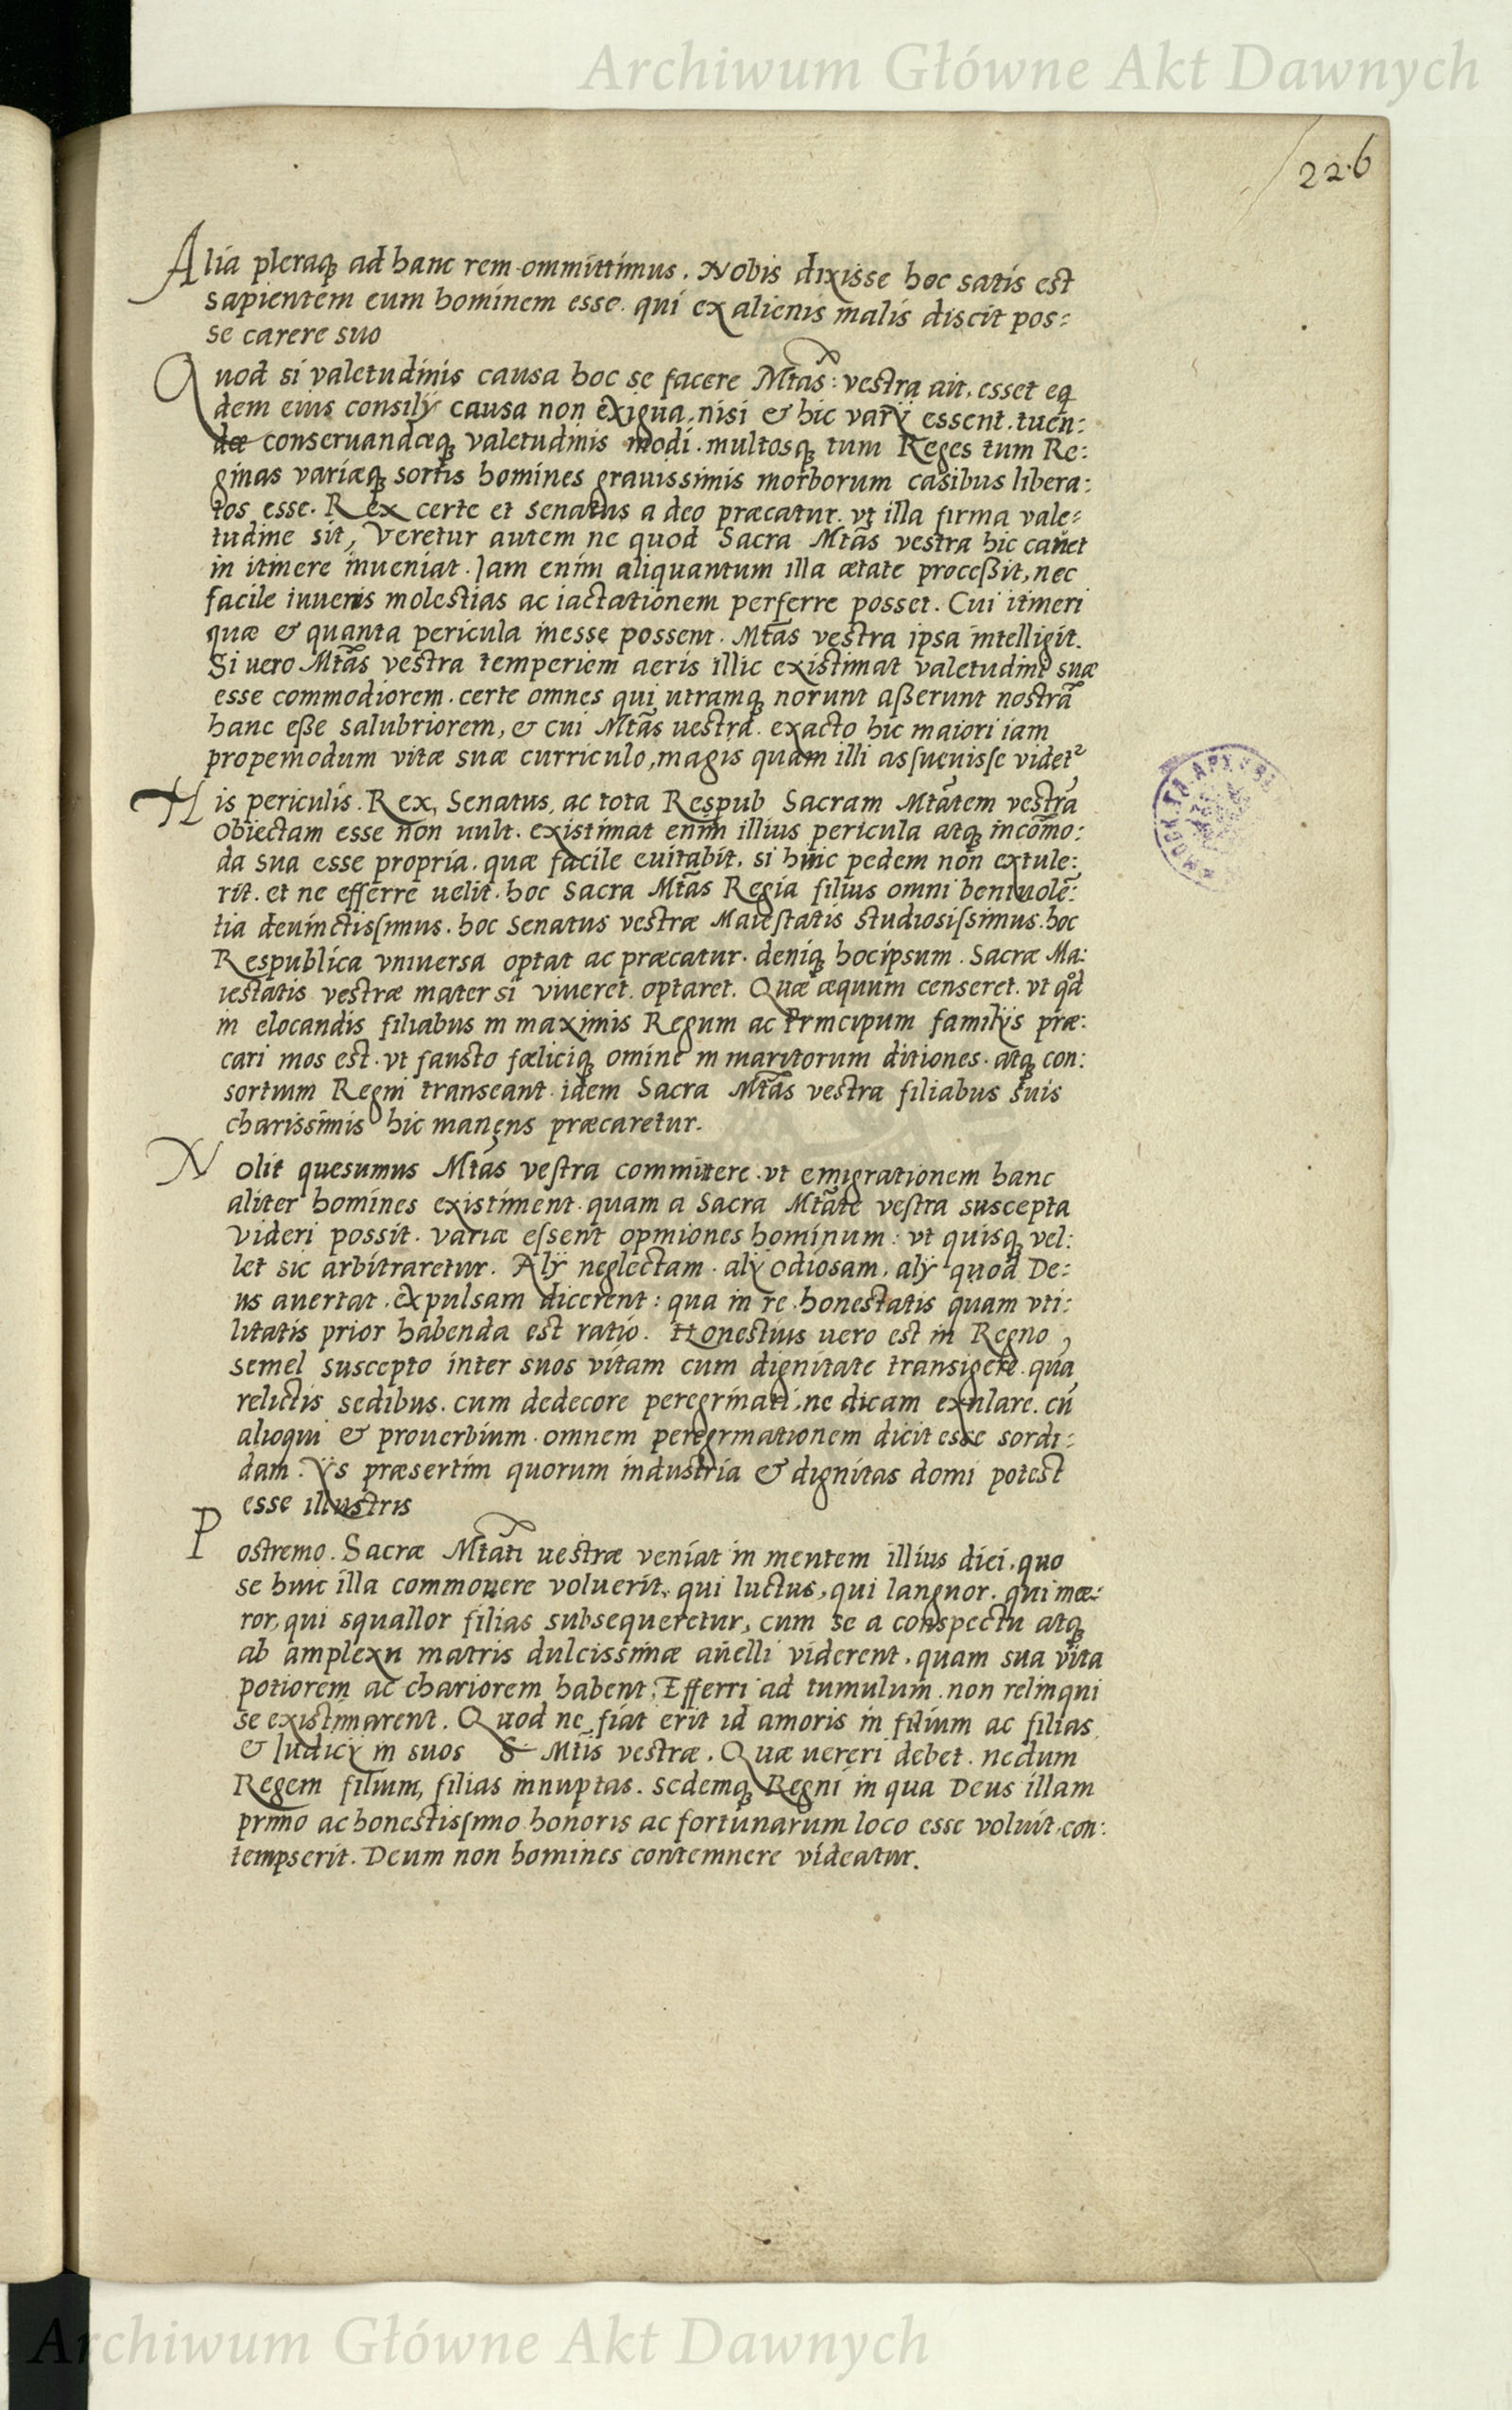 Archiwum Główne Akt Dawnych
226
Alia pleraq ad hanc rem ommittimus. Nobis dixisse hoc satis est
sapientem eum hominem esse. qui ex alienis malis discit pos=
se carere suo
Quod si valetudinis causa hoc se facere Mtas: vestra ait, esset eq
dem eius consilÿ causa non exigua, nisi & hic varÿ essent. tuen:
dæ conseruandæq valetudinis modi. multosq tum Reges tum Re:
ginas variæq sortis homines grauissimis morborum casibus libera:
tos esse. Rex certe et senatus a deo præcatur. vt illa firma vale=
tudine sit, Veretur autem ne quod Sacra Mtas vestra hic cauet
in itinere inueniat. Jam enim aliquantum illa ætate proceßit, nec
facile iuueris molestias ac iactationem perferre posset. Cui itineri
quæ & quanta pericula inesse possent. Mtas vestra ipsa intelligit.
Si uero Mtas vestra temperiem aeris illic existimat valetudini suæ
esse commodiorem. certe omnes qui utramq norunt aßerunt nostrā
hanc eße salubriorem, & cui Mtas uestra. exacto hic maiori iam
propemodum vitæ suæ curriculo, magis quam illi assueuisse videt²
His periculis. Rex, Senatus, ac tota Respub Sacram Mtatem vestrā
obiectam esse non uult. existimat enim illius pericula atq incōmo:
da sua esse propria. quæ facile euitabit, si hinc pedem non extule:
rit. et ne efferre uelit. hoc Sacra Mtas Regia filius omni beniuolē:
tia deuinctissimus. hoc Senatus vestræ Maiestatis studiosissimus. hoc
Respublica vniuersa optat ac præcatur. deniq hocipsum. Sacræ Ma:
iestatis vestræ mater si viueret. optaret. Quæ æquum censeret. vt qd
in elocandis filiabus in maximis Regum ac Principum familÿs præ:
cari mos est. vt fausto fœliciq omine in maritorum ditiones. atq con:
sortium Regni transeant. idem Sacra Mtas vestra filiabus suis
charissimis hic manens præcaretur.
Nolit quesumus Mtas vestra committere. vt emigrationem hanc
aliter homines existiment. quam a Sacra Mtate vestra suscepta
videri possit. variæ essent opiniones hominum: vt quisq vel:
let sic arbitraretur. Alÿ neglectam. alÿ odiosam, alÿ quod De:
us auertat. expulsam dicerent: qua in re honestatis quam vti:
litatis prior habenda est ratio. Honestius uero est in Regno
semel suscepto inter suos vitam cum dignitate transigere. quā
relictis sedibus. cum dedecore peregrinari, ne dicam exulare. cū
alioqui & prouerbium. omnem peregrinationem dicit esse sordi:
dam. ÿs præsertim quorum industria & dignitas domi potest
esse illustris
Postremo. Sacræ Mtati uestræ veniat in mentem illius diei. quo
se hinc illa commouere voluerit. qui luctus, qui languor. qui mœ:
ror, qui squallor filias subsequeretur, cum se a conspectu atq
ab amplexu matris dulcissimæ auelli viderent, quam sua vita
potiorem ac chariorem habent. Efferri ad tumulum. non relinqui
se existimarent. Quod ne fiat erit id amoris in filium ac filias
& Judicÿ in suos S Mtis vestræ. Quæ uereri debet. nedum
Regem filium, filias innuptas. sedemq Regni in qua Deus illam
primo ac honestissimo honoris ac fortunarum loco esse voluit. con:
tempserit. Deum non homines contemnere videatur.
Archiwum Główne Akt Dawnych